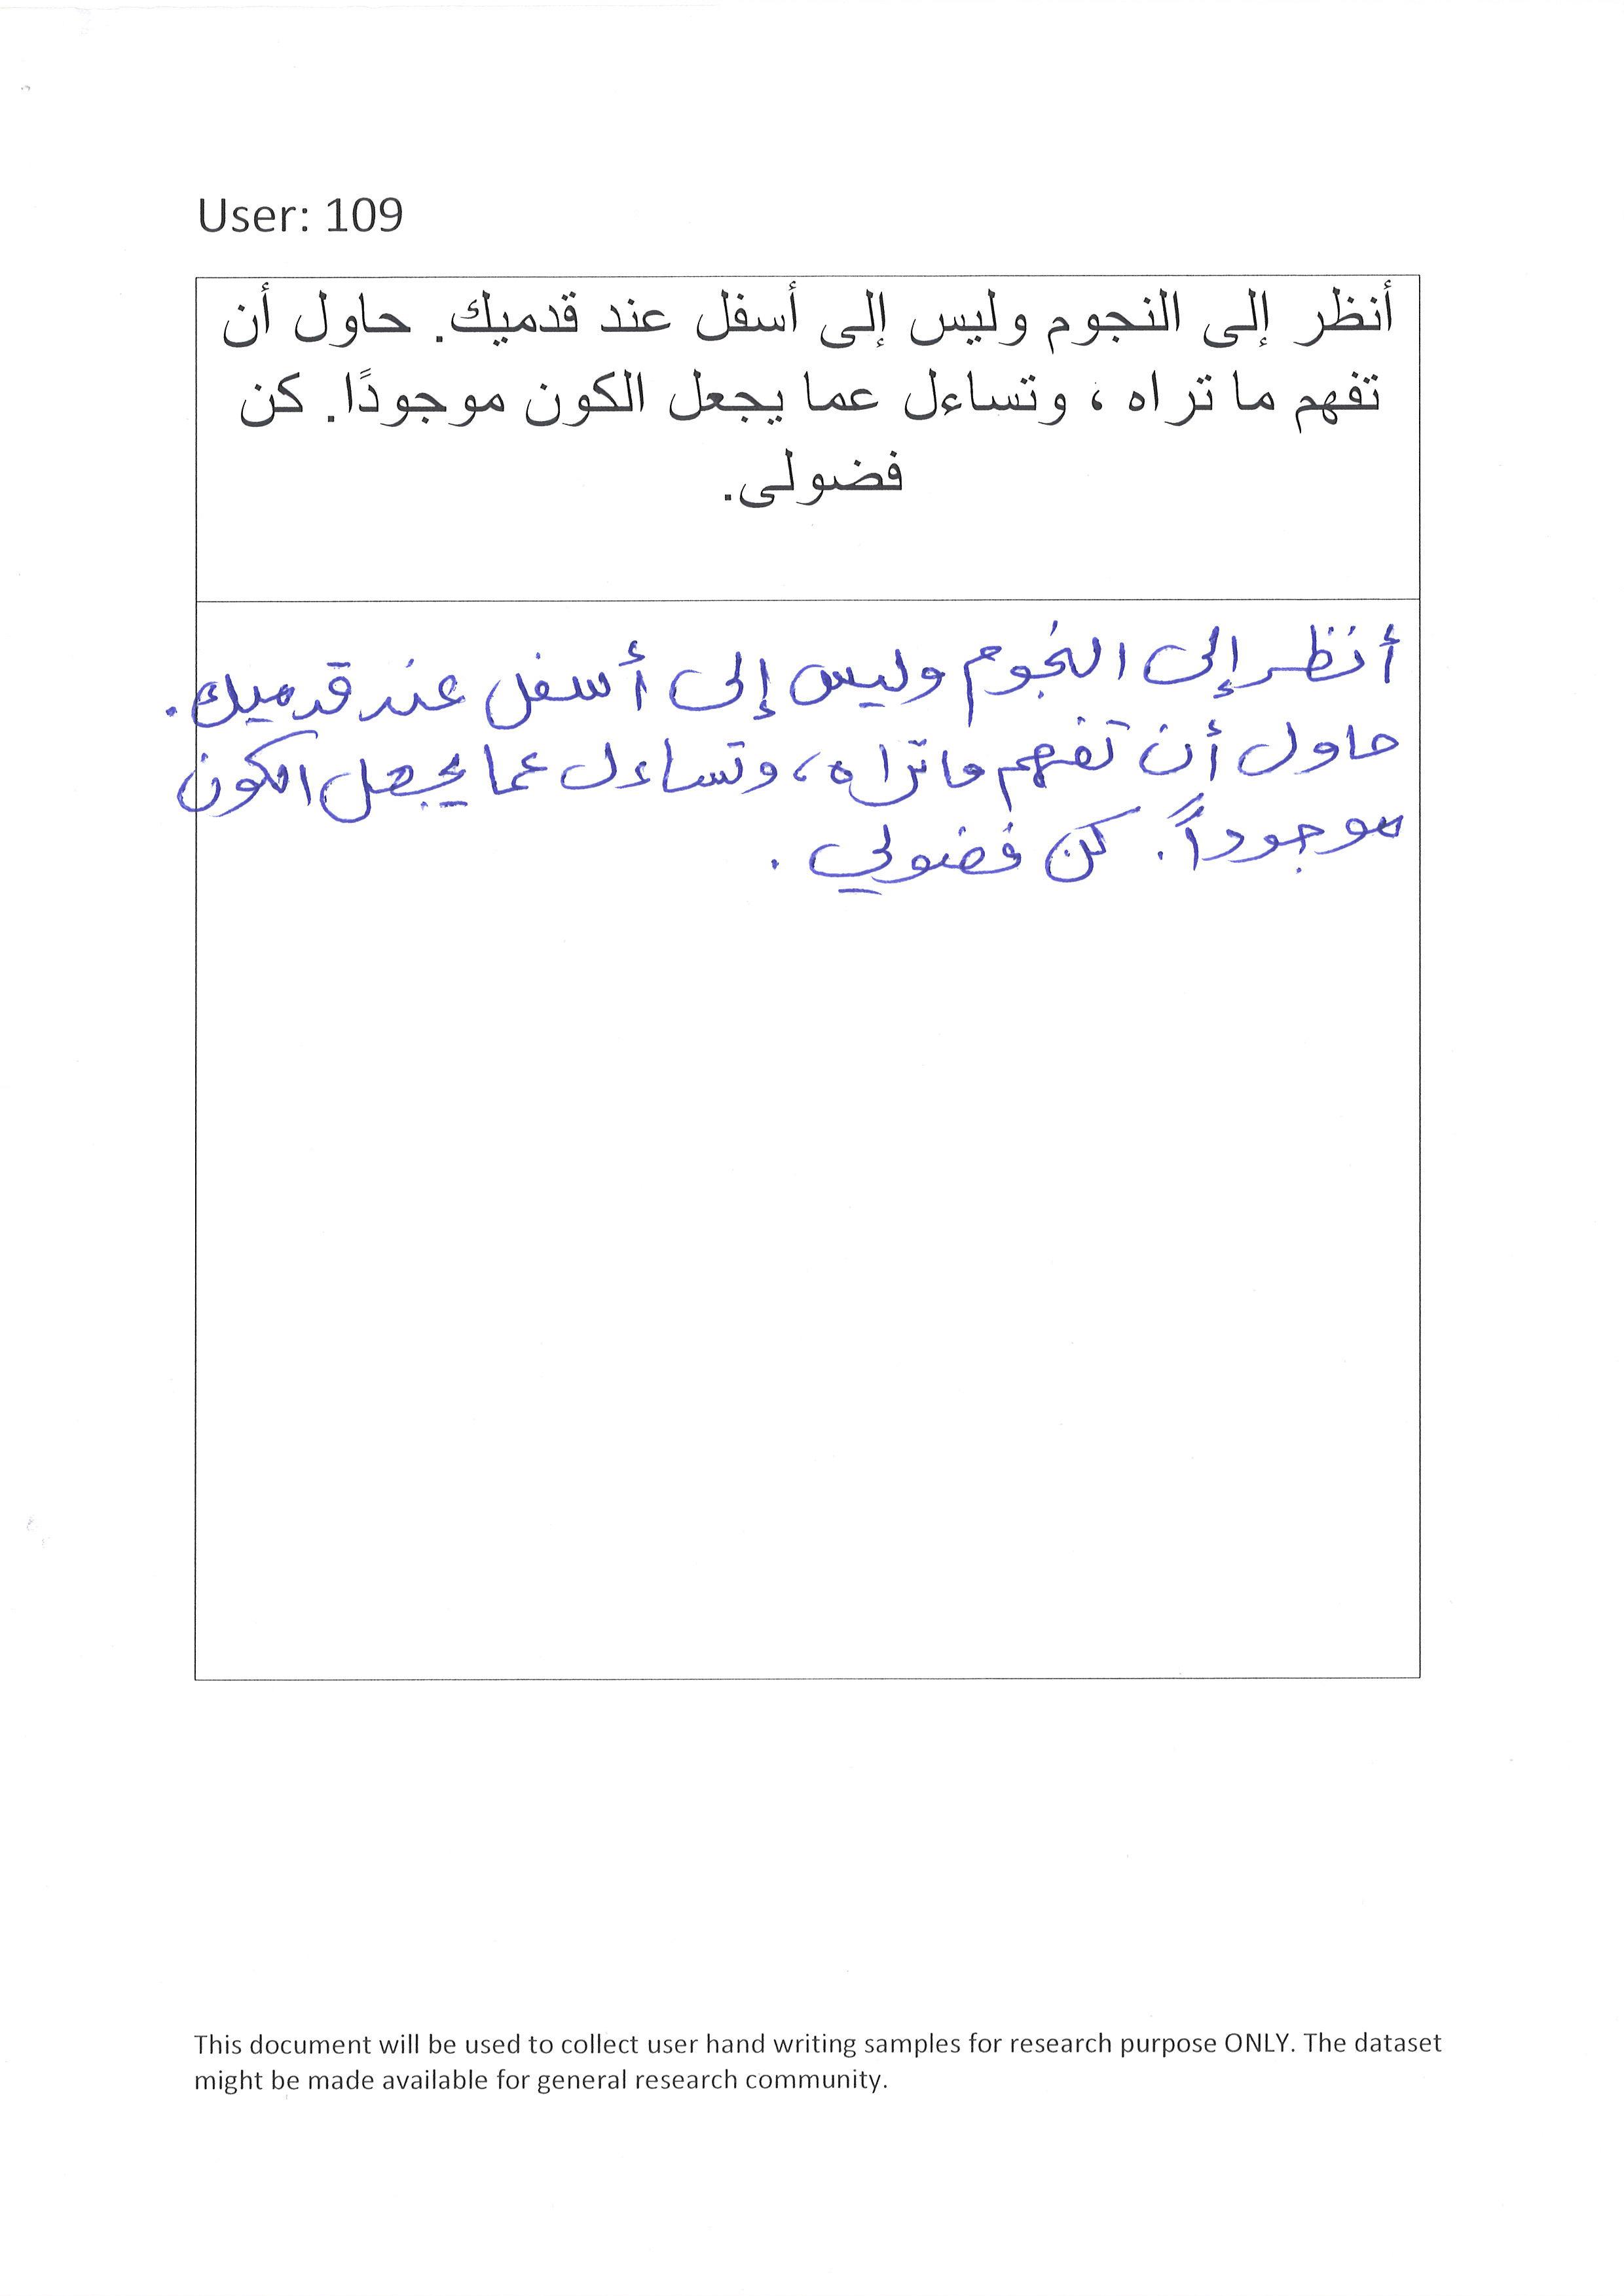 User: 109
أنظر إلى النجوم وليس إلى أسفل عند قدميك. حاول أن
تفهم ما تراه ، وتساءل عما يجعل الكون موجودًا. كن
فضولى.
أنظر إلى النجوم وليس إلى أسفل عند قدميك.
حاول أن تفهم ما تراه، وتساءل عما يجعل الكون
موجوداً. كن فضولي.
This document will be used to collect user hand writing samples for research purpose ONLY. The dataset
might be made available for general research community.